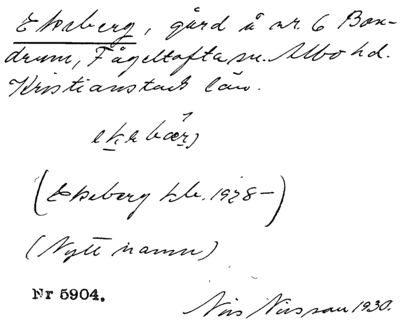 Ekeberg, gård å nr. 6 Box-
drum, Fågeltofta sn. Albo hd.
Kristianstads län.
(Ekeberg kb. 1928-)
(Nytt namn)
Nr 5904.
Nils Nilsson 1930.